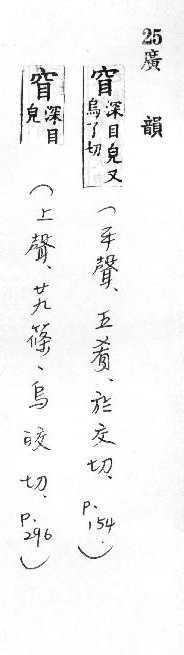 25 廣韻
窅深目皃又
烏了切
(平聲、五肴、於交切、p.154.)
窅深目
皃
(上聲、廿九篠、烏皎切、p.296)